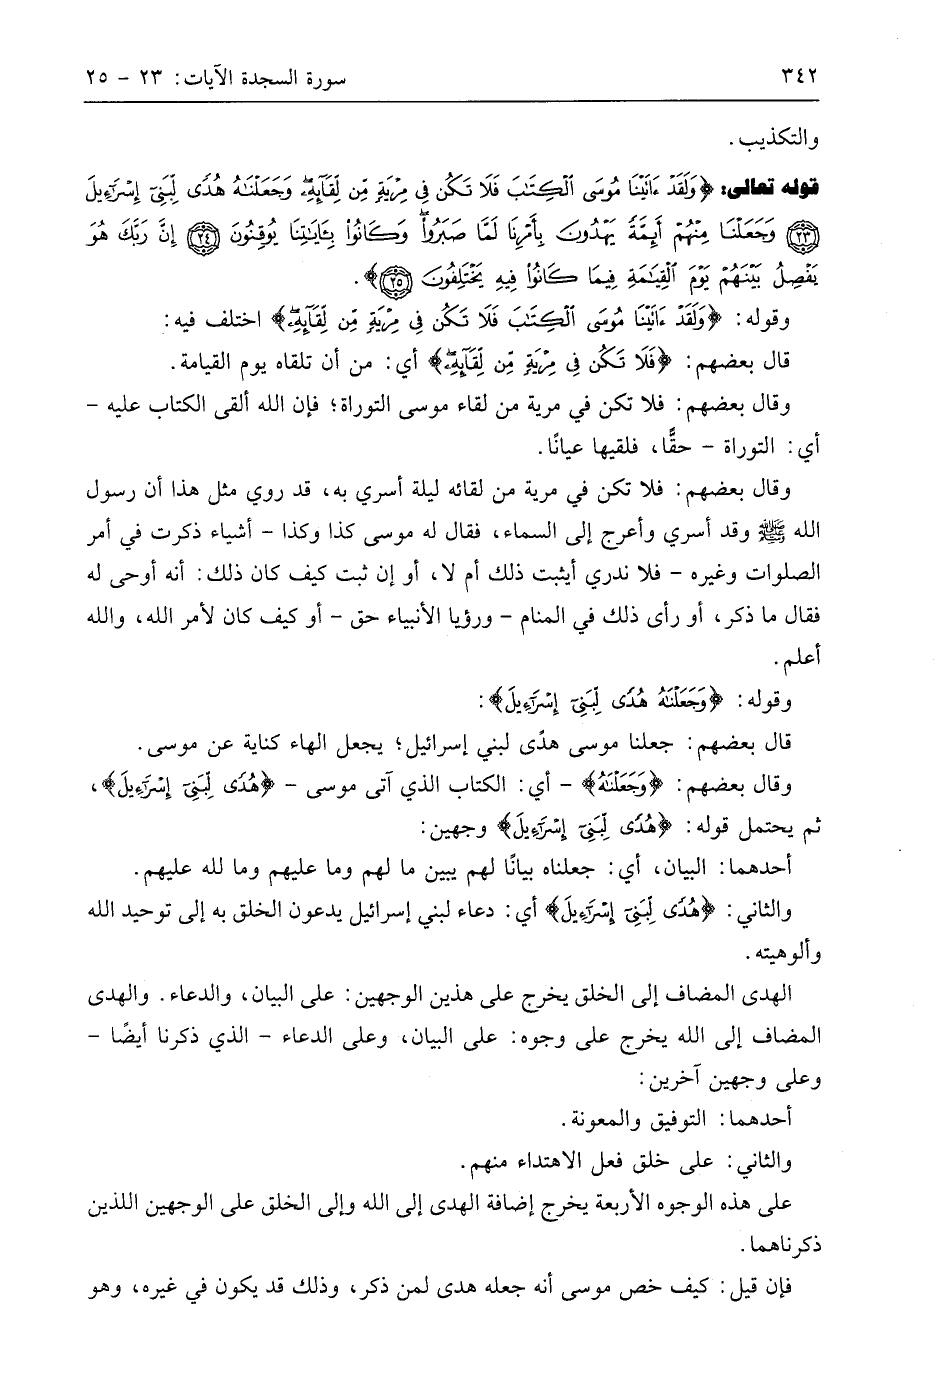 ٣٤٢ سورة السجدة الآيات: ٢٣ - ٢٥
والتكذيب.
قوله تعالى: ﴿وَلَقَدْ ءَاتَيْنَا مُوسَى ٱلْكِتَٰبَ فَلَا تَكُن فِى مِرْيَةٍ مِّن لِّقَآئِهِۦۖ وَجَعَلْنَٰهُ هُدًى لِّبَنِىٓ إِسْرَٰٓءِيلَ
﴿٢٣﴾ وَجَعَلْنَا مِنْهُمْ أَئِمَّةً يَهْدُونَ بِأَمْرِنَا لَمَّا صَبَرُوا۟ۖ وَكَانُوا۟ بِـَٔايَٰتِنَا يُوقِنُونَ ﴿٢٤﴾ إِنَّ رَبَّكَ هُوَ
يَفْصِلُ بَيْنَهُمْ يَوْمَ ٱلْقِيَٰمَةِ فِيمَا كَانُوا۟ فِيهِ يَخْتَلِفُونَ ﴿٢٥﴾﴾.
وقوله: ﴿وَلَقَدْ ءَاتَيْنَا مُوسَى ٱلْكِتَٰبَ فَلَا تَكُن فِى مِرْيَةٍ مِّن لِّقَآئِهِۦۖ﴾ اختلف فيه:
قال بعضهم: ﴿فَلَا تَكُن فِى مِرْيَةٍ مِّن لِّقَآئِهِۦۖ﴾ أي: من أن تلقاه يوم القيامة.
وقال بعضهم: فلا تكن في مرية من لقاء موسى التوراة؛ فإن الله ألقى الكتاب عليه -
أي: التوراة - حقًّا، فلقيها عيانًا.
وقال بعضهم: فلا تكن في مرية من لقائه ليلة أسري به، قد روي مثل هذا أن رسول
الله ﷺ وقد أسري وأعرج إلى السماء، فقال له موسى كذا وكذا - أشياء ذكرت في أمر
الصلوات وغيره - فلا ندري أيثبت ذلك أم لا، أو إن ثبت كيف كان ذلك: أنه أوحى له
فقال ما ذكر، أو رأى ذلك في المنام - ورؤيا الأنبياء حق - أو كيف كان لأمر الله، والله
أعلم.
وقوله: ﴿وَجَعَلْنَٰهُ هُدًى لِّبَنِىٓ إِسْرَٰٓءِيلَ﴾:
قال بعضهم: جعلنا موسى هدًى لبني إسرائيل؛ يجعل الهاء كناية عن موسى.
وقال بعضهم: ﴿وَجَعَلْنَٰهُ﴾ - أي: الكتاب الذي آتى موسى - ﴿هُدًى لِّبَنِىٓ إِسْرَٰٓءِيلَ﴾،
ثم يحتمل قوله: ﴿هُدًى لِّبَنِىٓ إِسْرَٰٓءِيلَ﴾ وجهين:
أحدهما: البيان، أي: جعلناه بيانًا لهم يبين ما لهم وما عليهم وما لله عليهم.
والثاني: ﴿هُدًى لِّبَنِىٓ إِسْرَٰٓءِيلَ﴾ أي: دعاء لبني إسرائيل يدعون الخلق به إلى توحيد الله
وألوهيته.
الهدى المضاف إلى الخلق يخرج على هذين الوجهين: على البيان، والدعاء. والهدى
المضاف إلى الله يخرج على وجوه: على البيان، وعلى الدعاء - الذي ذكرنا أيضًا -
وعلى وجهين آخرين:
أحدهما: التوفيق والمعونة.
والثاني: على خلق فعل الاهتداء منهم.
على هذه الوجوه الأربعة يخرج إضافة الهدى إلى الله وإلى الخلق على الوجهين اللذين
ذكرناهما.
فإن قيل: كيف خص موسى أنه جعله هدى لمن ذكر، وذلك قد يكون في غيره، وهو